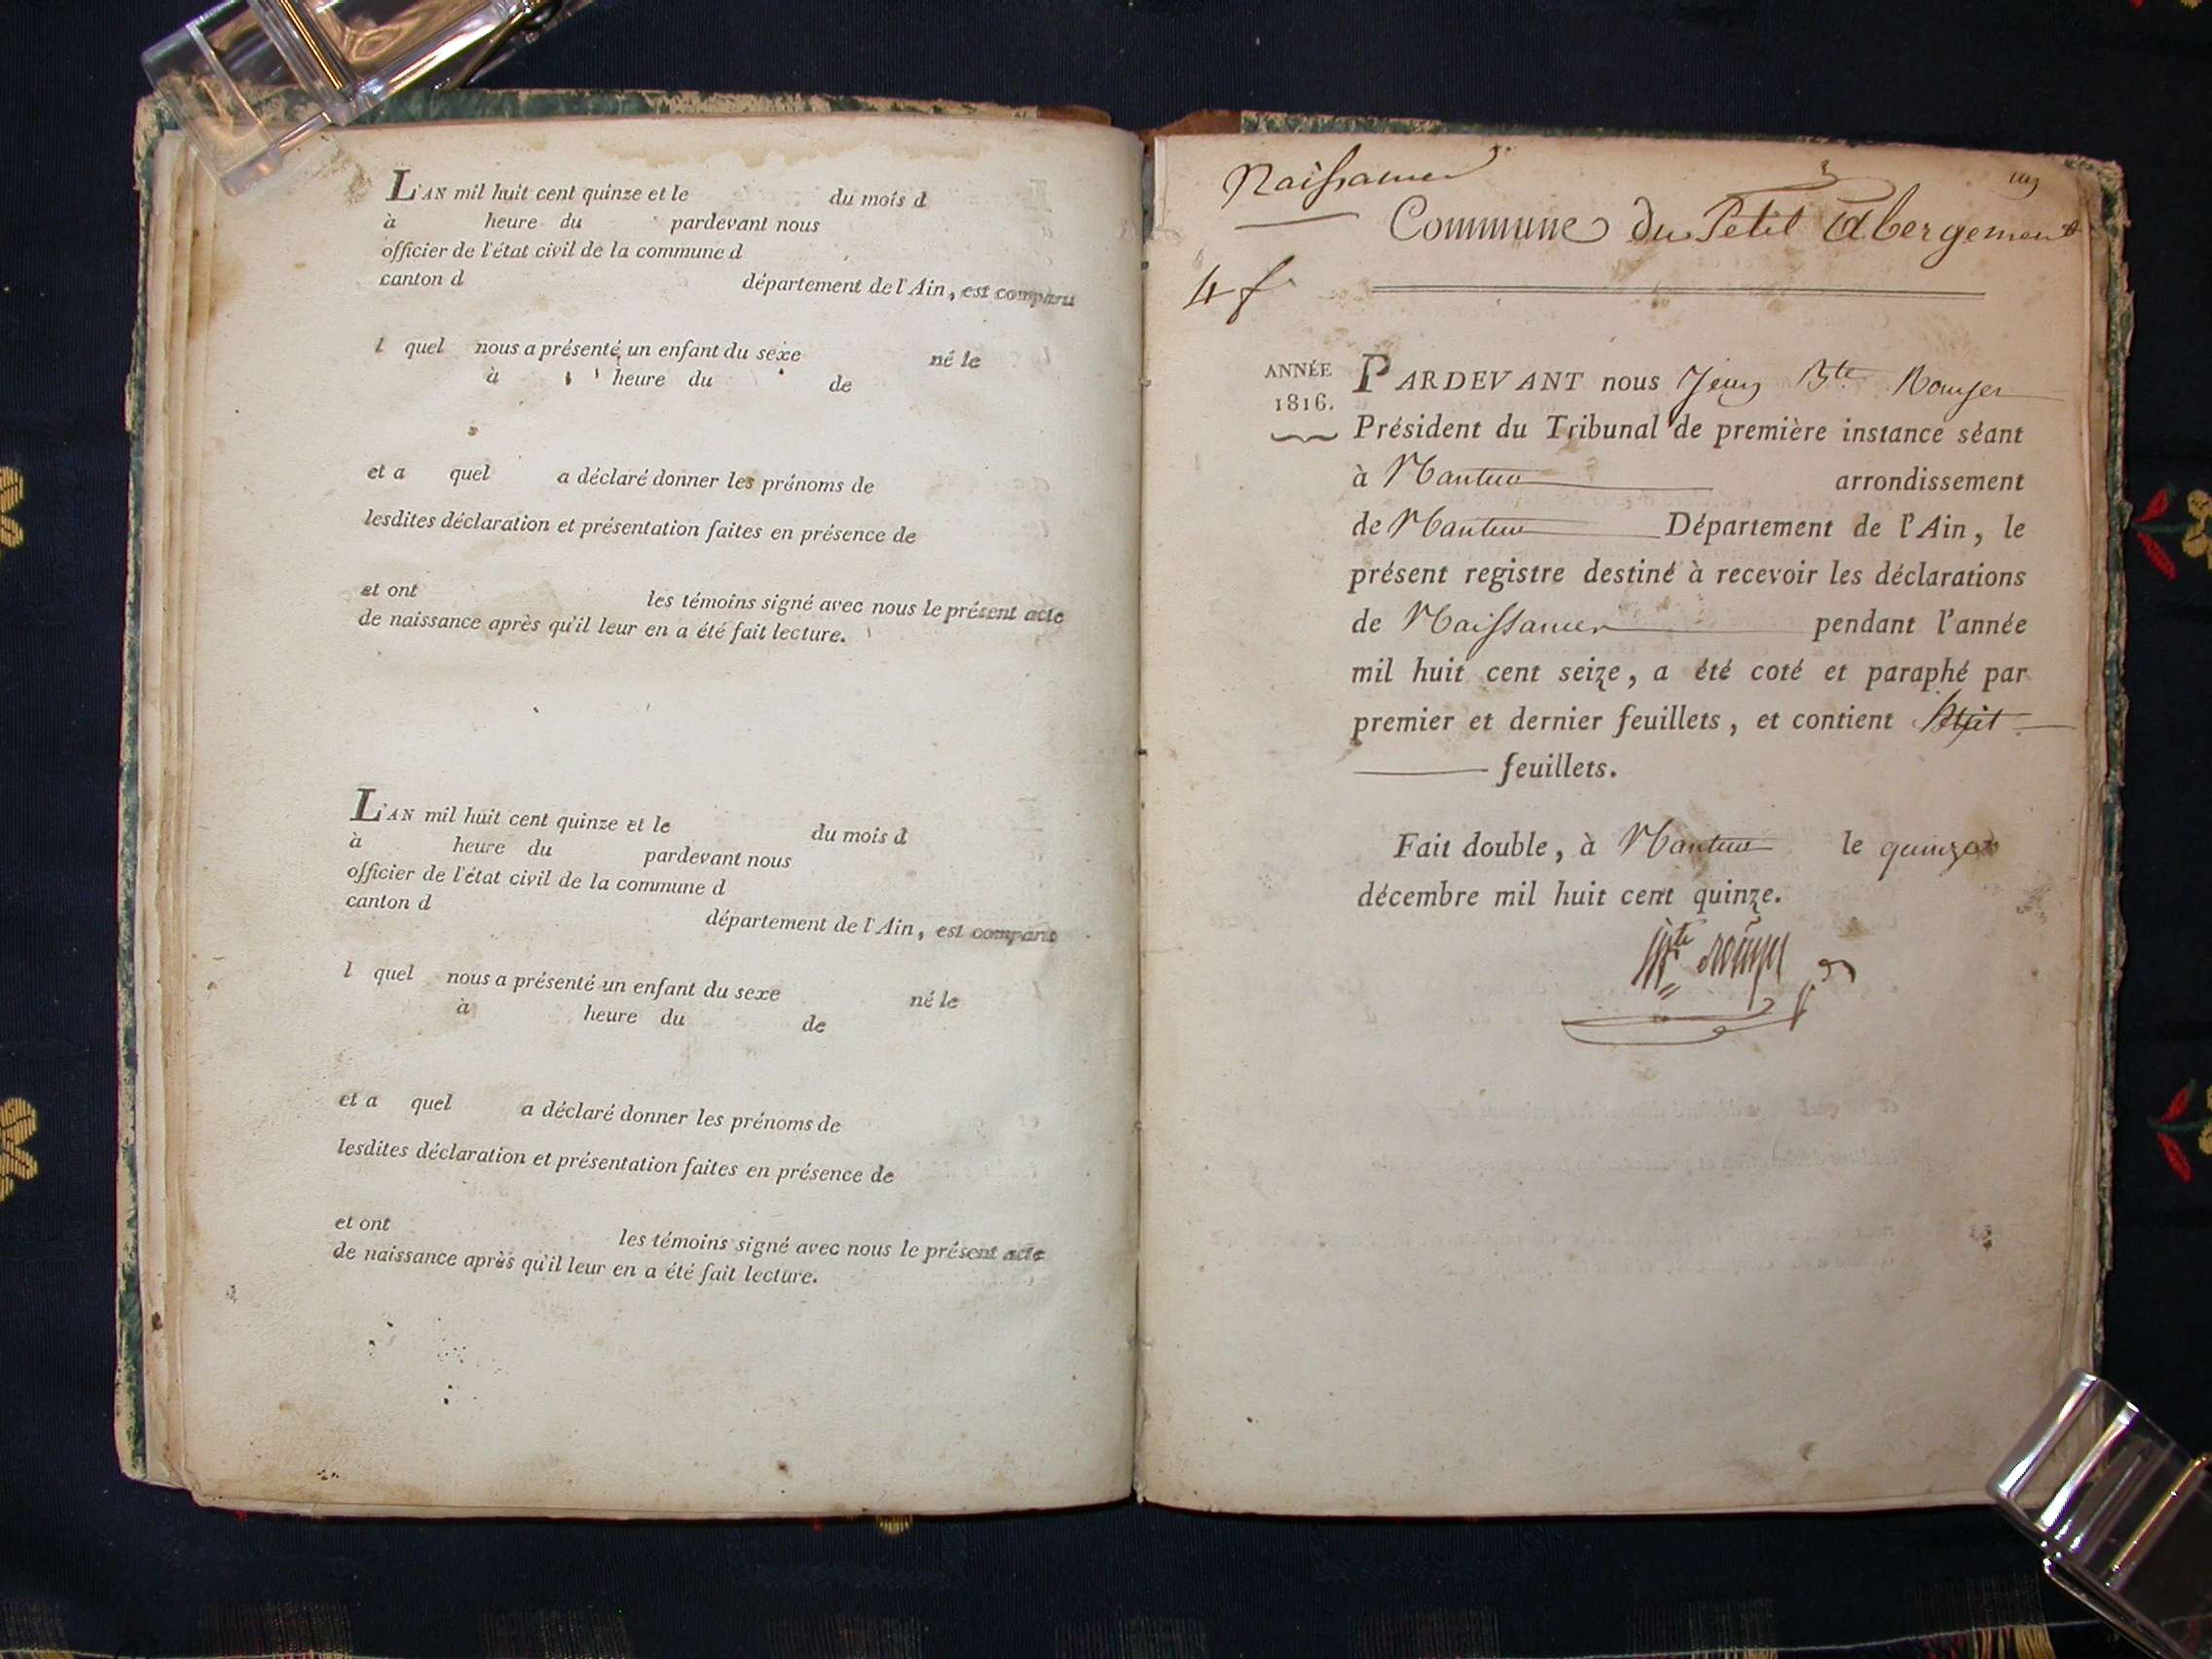 L'AN mil huit cent quinze et le du mois d
à heure du pardevant nous
officier de l'état civil de la commune d
canton d département de l'Ain, est comparu
l quel nous a présenté un enfant du sexe né le
à heure du de
et a quel a déclaré donner les prénoms de
lesdites déclaration et présentation faites en présence de
et ont les témoins signé avec nous le présent acte
de naissance après qu'il leur en a été fait lecture.
L'AN mil huit cent quinze et le du mois d
à heure du pardevant nous
officier de l'état civil de la commune d
canton d département de l'Ain, est comparu
l quel nous a présenté un enfant du sexe né le
à heure du de
et a quel a déclaré donner les prénoms de
lesdites déclaration et présentation faites en présence de
et ont les témoins signé avec nous le présent acte
de naissance après qu'il leur en a été fait lecture.
Naissances
Commune du Petit abergement
4 f
ANNÉE
1816.
PARDEVANT nous Jean Bte Rouyer
Président du Tribunal de première instance séant
à Nantua arrondissement
de Nantua Département de l'Ain, le
présent registre destiné à recevoir les déclarations
de Naissances pendant l'année
mil huit cent seize, a été coté et paraphé par
premier et dernier feuillets, et contient huit
feuillets.
Fait double, à Nantua le quinze
décembre mil huit cent quinze.